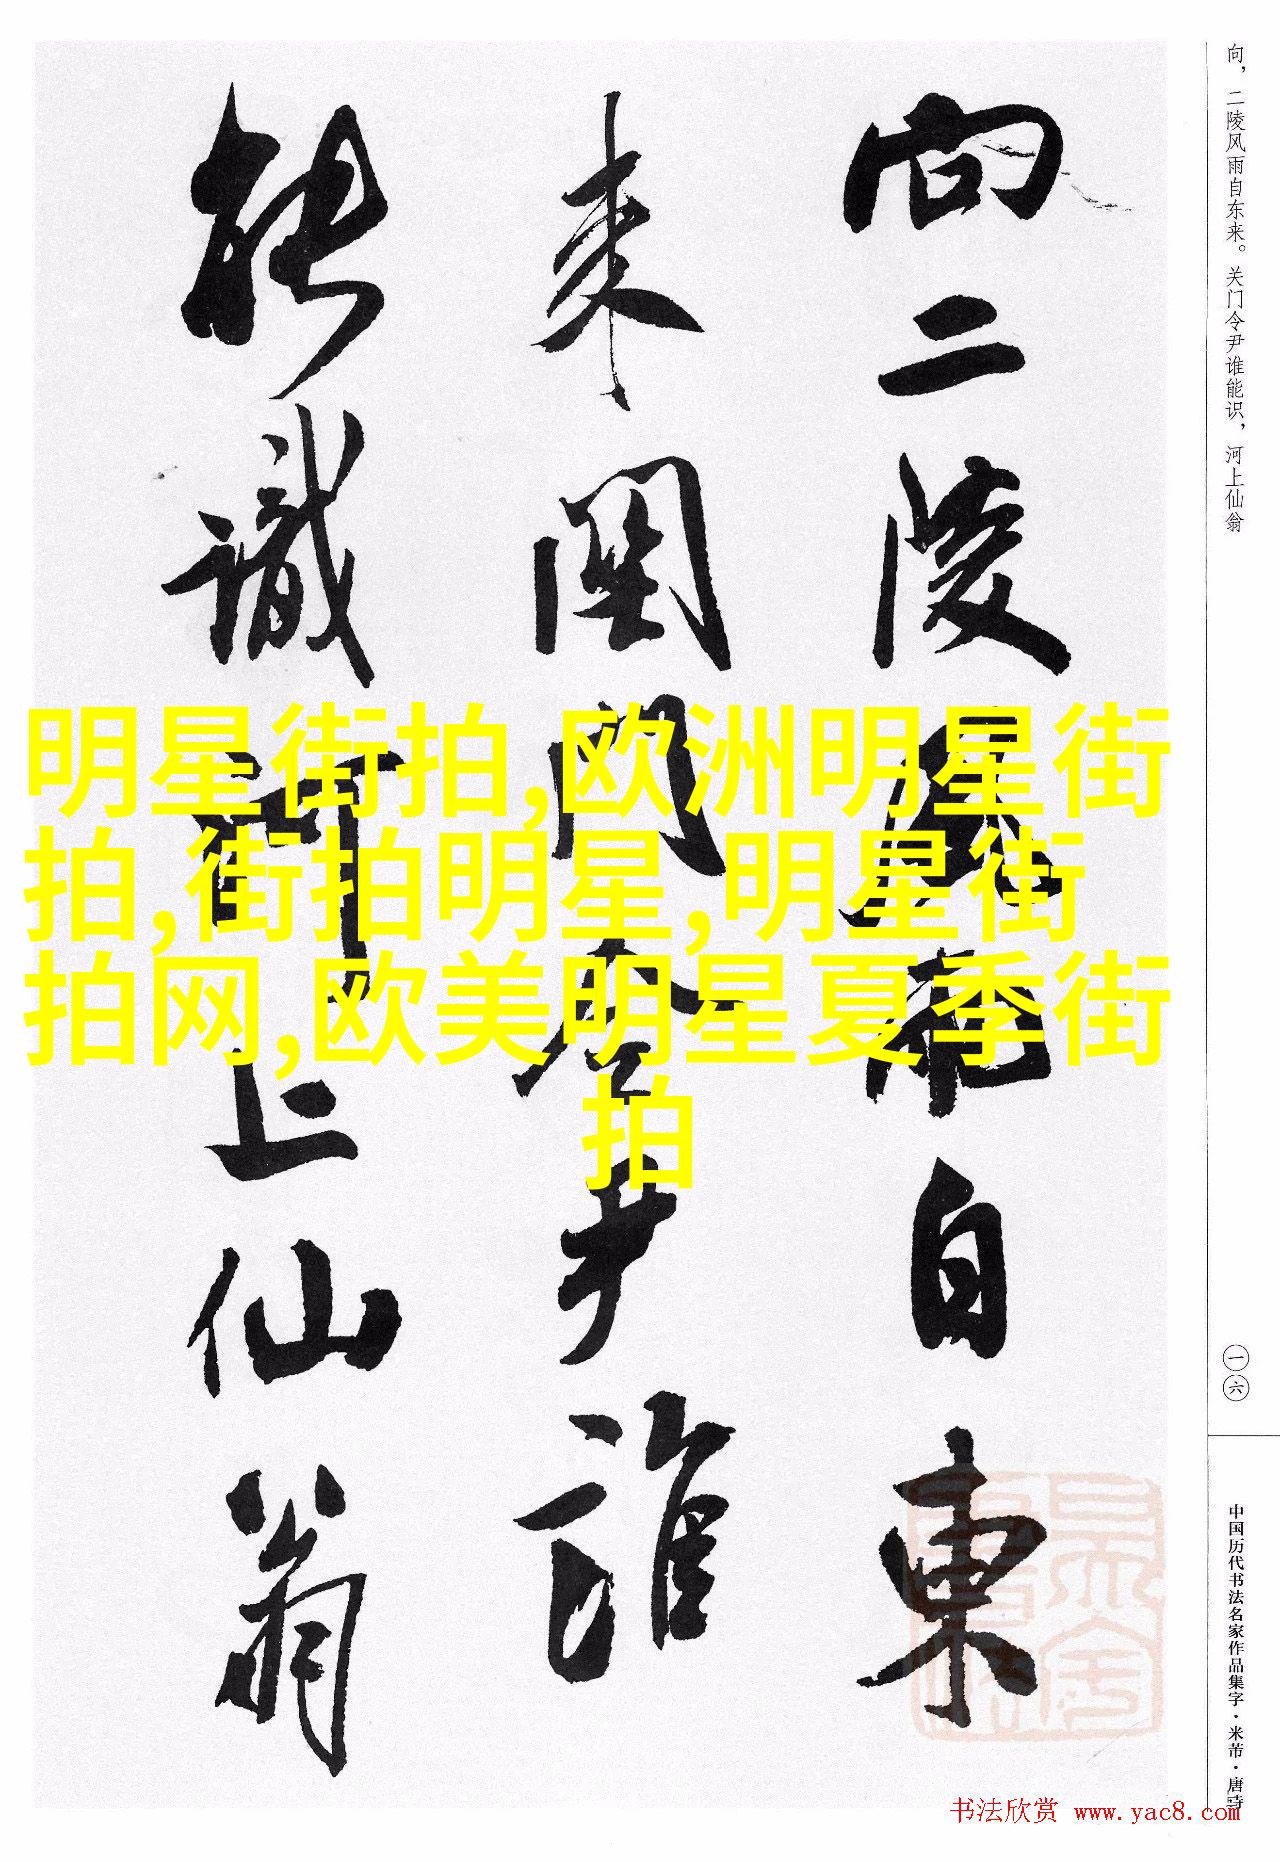 向二陵風雨自東
来関門令尹誰
能識河上仙翁
向，二陵风雨自东来。关门令尹谁能识，河上仙翁
一六
中国历代书法名家作品集字·米芾·唐诗
明星街拍,欧洲明星街
拍,街拍明星,明星街
拍网,欧美明星夏季街
拍
书法欣赏 www.yac8.com